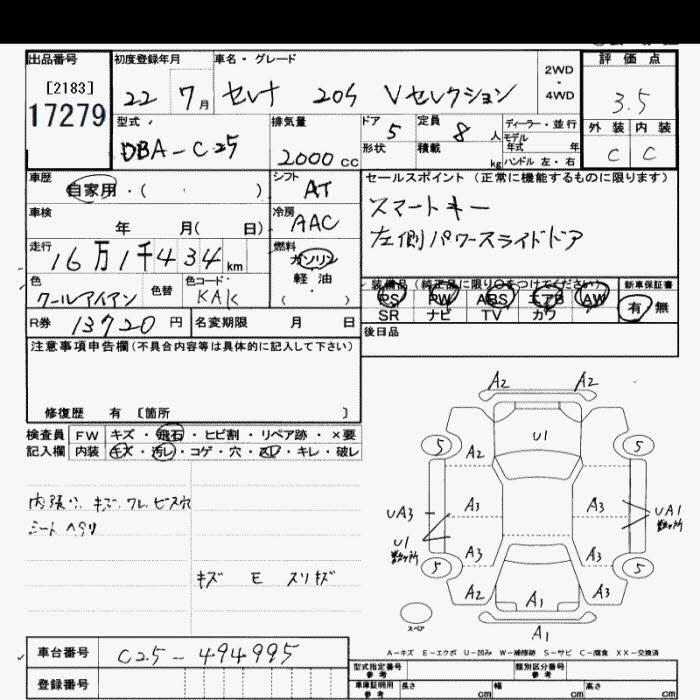 出品番号 初度登録年月 車名・グレード 2WD・4WD 評価点
[2183]
17279
22 7月 セレナ 20S Vセレクション 3.5
型式 排気量 ドア 定員 ディーラー・並行 外装 内装
DBA-C25 2000cc 5 8人 モデル年式 年 C C
形状 積載 kg ハンドル 左・右
車歴 シフト セールスポイント (正常に機能するものに限ります)
自家用・( ) AT スマートキー
車検 冷房
年 月( 日) AAC 左側パワースライドドア
走行 燃料
16万1千434km ガソリン
軽油
( )
色 色替 色コード 装備品 (純正品に限り○をつけてください) 新車保証書
クールアイアン KAK PS PW ABS エアB AW 有 無
SR ナビ TV カワ
R券 13720円 名変期限 月 日 後日品
注意事項申告欄(不具合内容等は具体的に記入して下さい)
修復歴 有 〔箇所 〕
検査員 FW キズ・飛石・ヒビ割・リペア跡・×要
記入欄 内装 キズ・汚レ・コゲ・穴・スレ・キレ・破レ
内張り、キズ、ワレ、ビス穴
シート ヘタリ
キズ E スリキズ
A2 A2
U1
5 5
A2
UA3 A3 A3 UA1
数ヶ所
U1
数ヶ所
A3 A3
5 5
A2 A1 A3
スペア
A1
A-キズ E-エクボ U-凹み W-補修跡 S-サビ C-腐食 XX-交換済
車台番号 C25-494995
登録番号
型式指定番号 参考 類別区分番号 参考
車庫証明用 参考 長さ cm 幅 cm 高さ cm